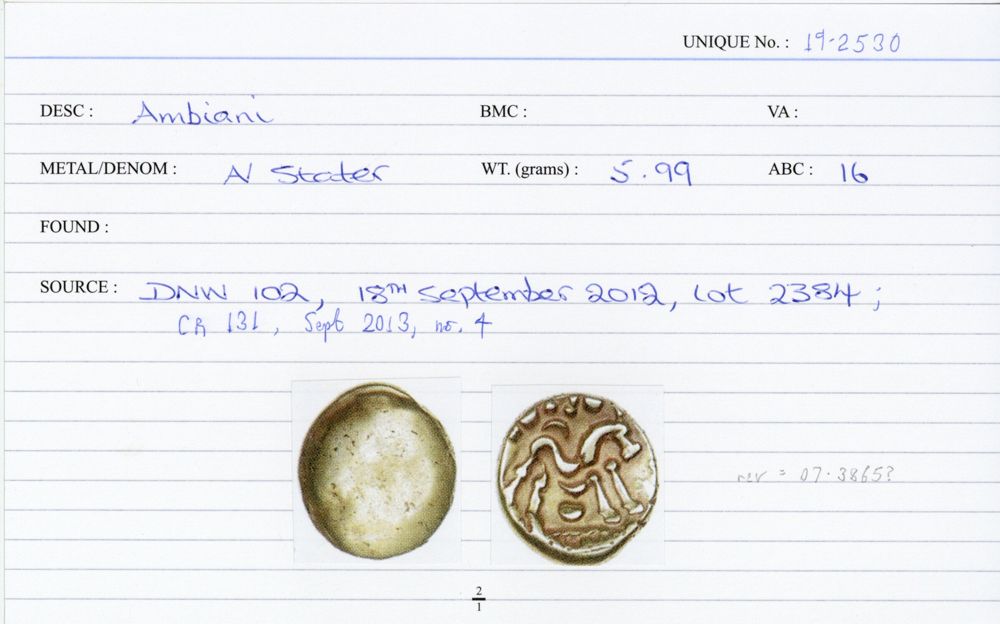 UNIQUE No. : 19-2530
DESC : Ambiani BMC : VA :
METAL/DENOM : AV Stater WT. (grams) : 5.99 ABC : 16
FOUND :
SOURCE : DNW 102, 18TH September 2012, Lot 2384 ;
CR 131, Sept 2013, no. 4
rev = 07.3865?
2
1